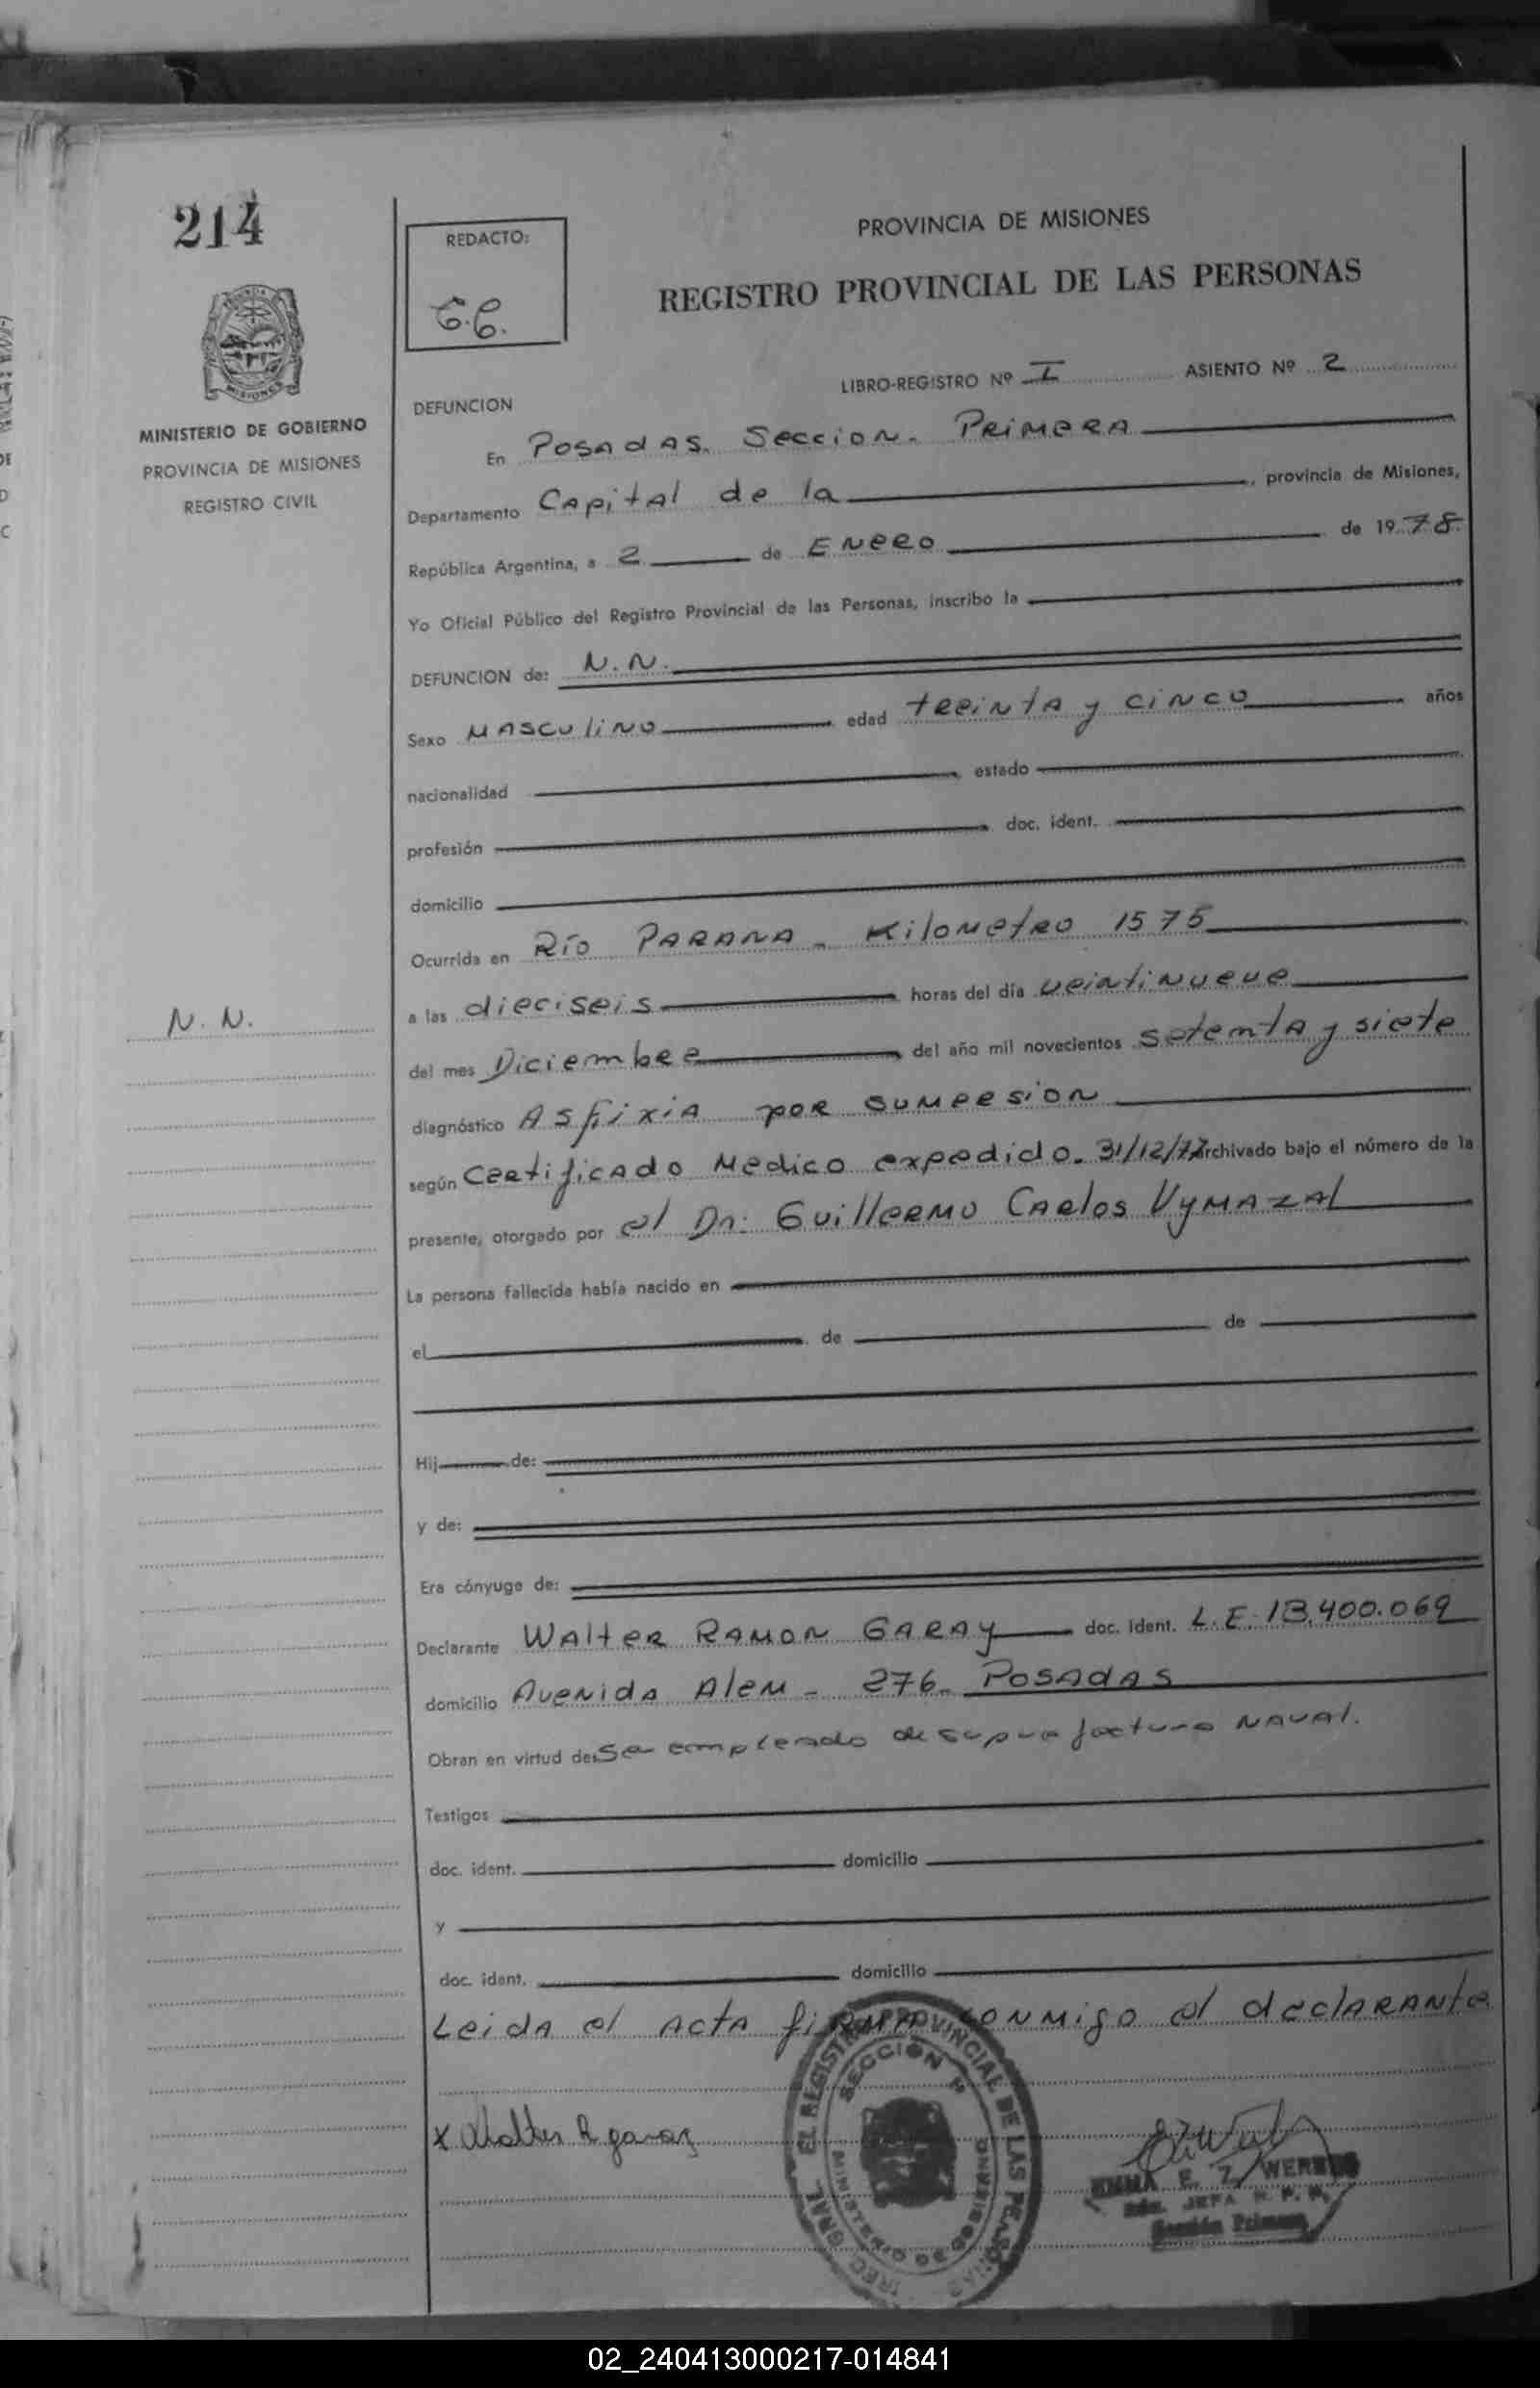 214
REDACTO:
PROVINCIA DE MISIONES
REGISTRO PROVINCIAL DE LAS PERSONAS
MISIONES
MINISTERIO DE GOBIERNO
PROVINCIA DE MISIONES
REGISTRO CIVIL
LIBRO-REGISTRO Nº I ASIENTO Nº 2
DEFUNCION
En Posadas. Seccion. Primera
Departamento Capital de la, provincia de Misiones,
República Argentina, a 2 de Enero de 1978.
Yo Oficial Público del Registro Provincial de las Personas, inscribo la
DEFUNCION de: N.N.
Sexo Masculino edad treinta y cinco años
nacionalidad estado
profesión doc. ident.
domicilio
Ocurrida en Río Parana - Kilometro 1575
a las dieciseis horas del día veintinueve
N. N.
del mes Diciembre del año mil novecientos setemta y siete
diagnóstico Asfixia por sumersion
según Certificado Medico expedido. 31/12/77 Archivado bajo el número de la
presente, otorgado por el Dr: Guillermo Carlos Vymazal
La persona fallecida había nacido en
el de de
Hij de:
y de:
Era cónyuge de:
Declarante Walter Ramon Garay doc. ident. L.E. 13.400.069
domicilio Avenida Alem - 276. Posadas
Obran en virtud de: Ser empleado de Naval.
Testigos
doc. ident. domicilio
y
doc. ident. domicilio
Leida el acta firma conmigo el declarante
EL REGISTRO PROVINCIAL DE LAS PERSONAS
SECCION
MINISTERIO DE GOBIERNO
x Walter R garay
EMMA E. Z. WER
JEFA R. P. P.
Sección Primera
02_240413000217-014841